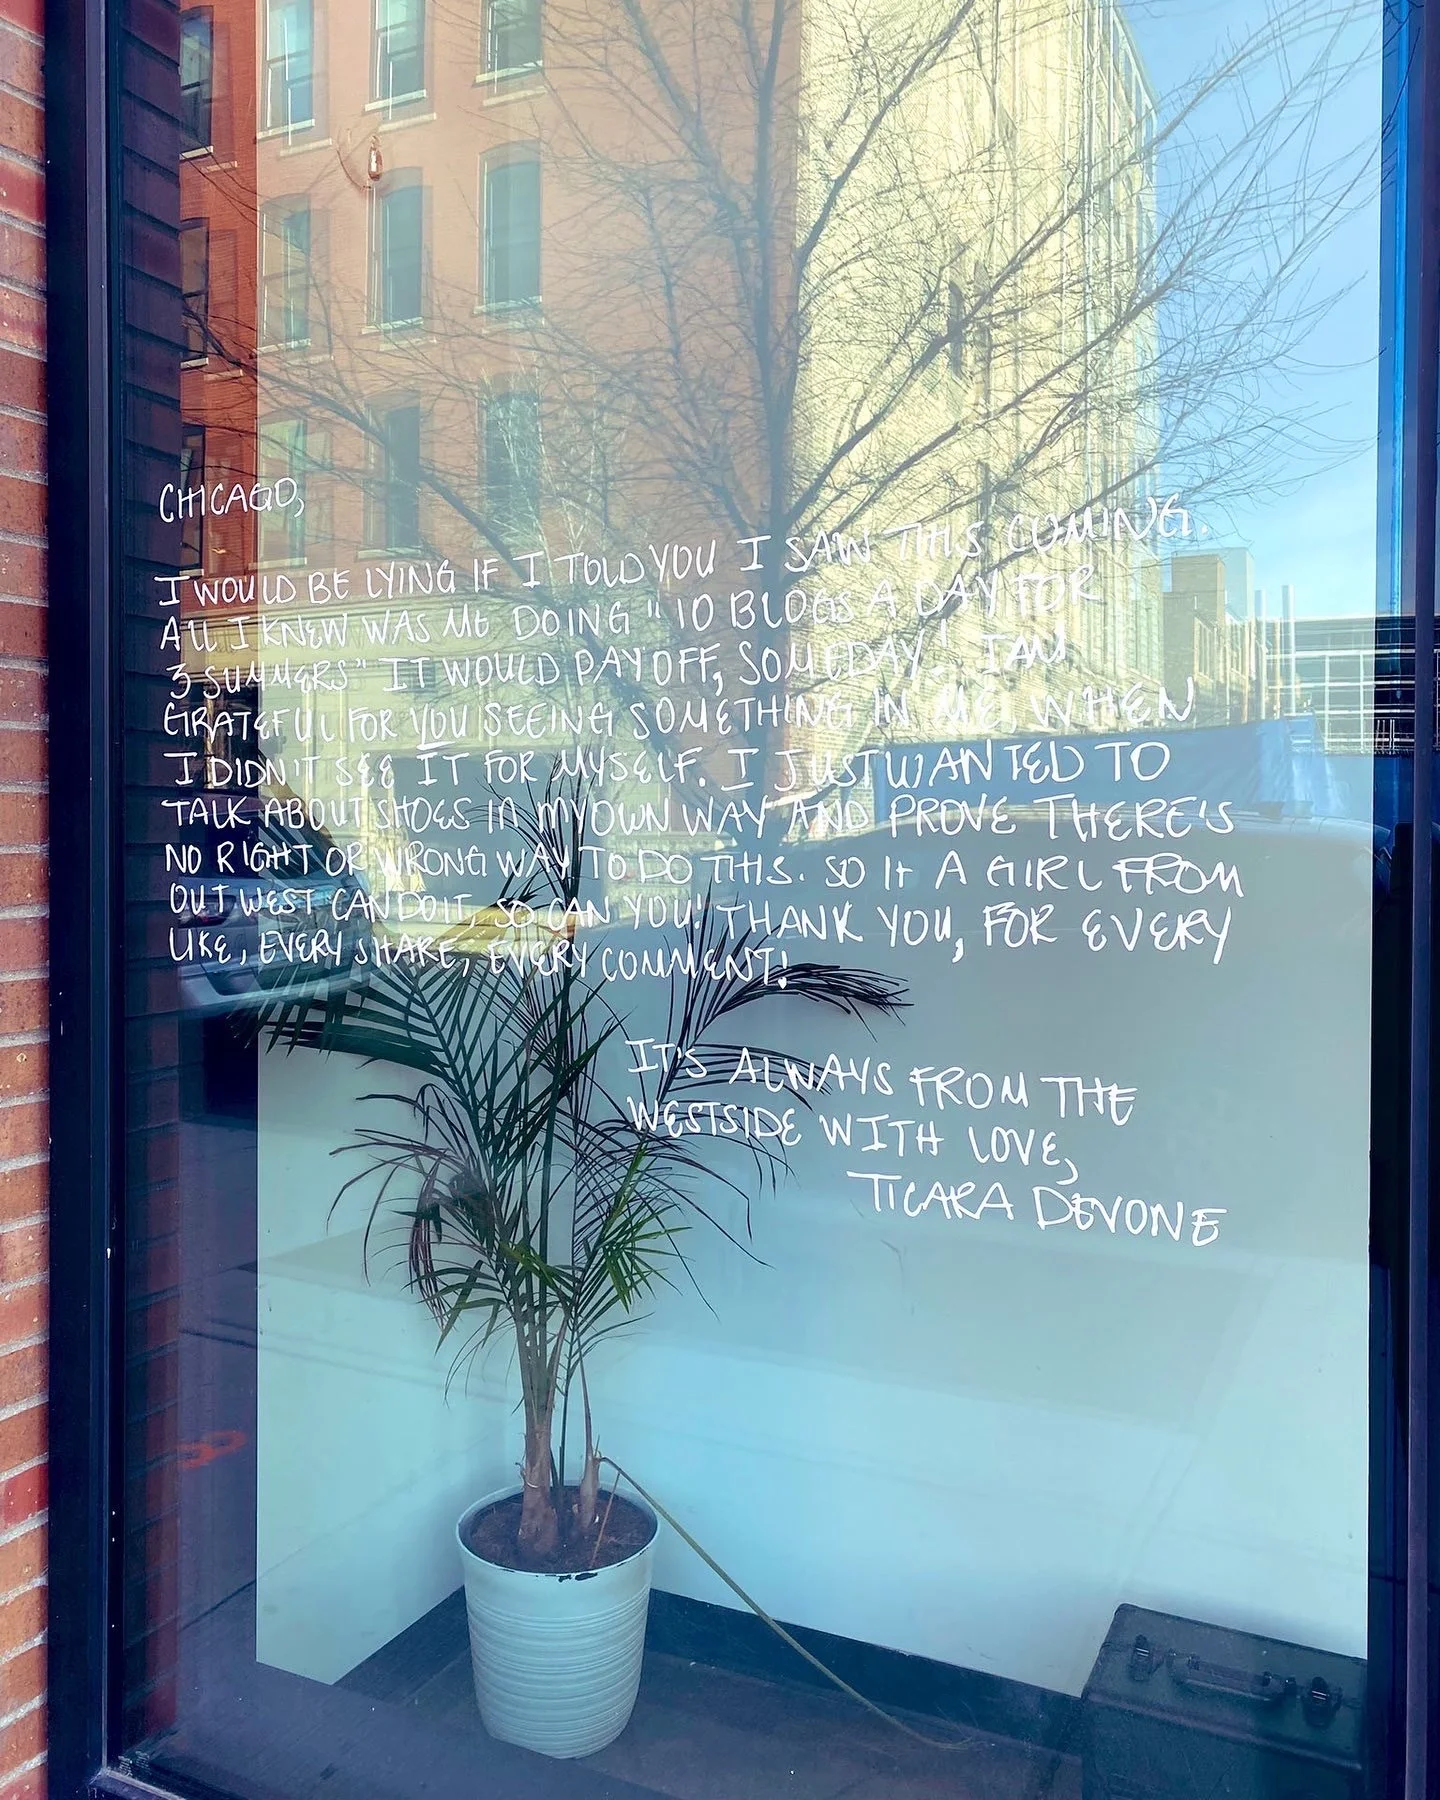 CHICAGO,
I WOULD BE LYING IF I TOLD YOU I SAW THIS COMING.
ALL I KNEW WAS ME DOING "10 BLOGS A DAY FOR
3 SUMMERS" IT WOULD PAY OFF, SOMEDAY! I AM
GRATEFUL FOR YOU SEEING SOMETHING IN ME, WHEN
I DIDN'T SEE IT FOR MYSELF. I JUST WANTED TO
TALK ABOUT SHOES IN MY OWN WAY AND PROVE THERE'S
NO RIGHT OR WRONG WAY TO DO THIS. SO IF A GIRL FROM
OUT WEST CAN DO IT, SO CAN YOU! THANK YOU, FOR EVERY
LIKE, EVERY SHARE, EVERY COMMENT!
IT'S ALWAYS FROM THE
WESTSIDE WITH LOVE,
TICARA DEVONE